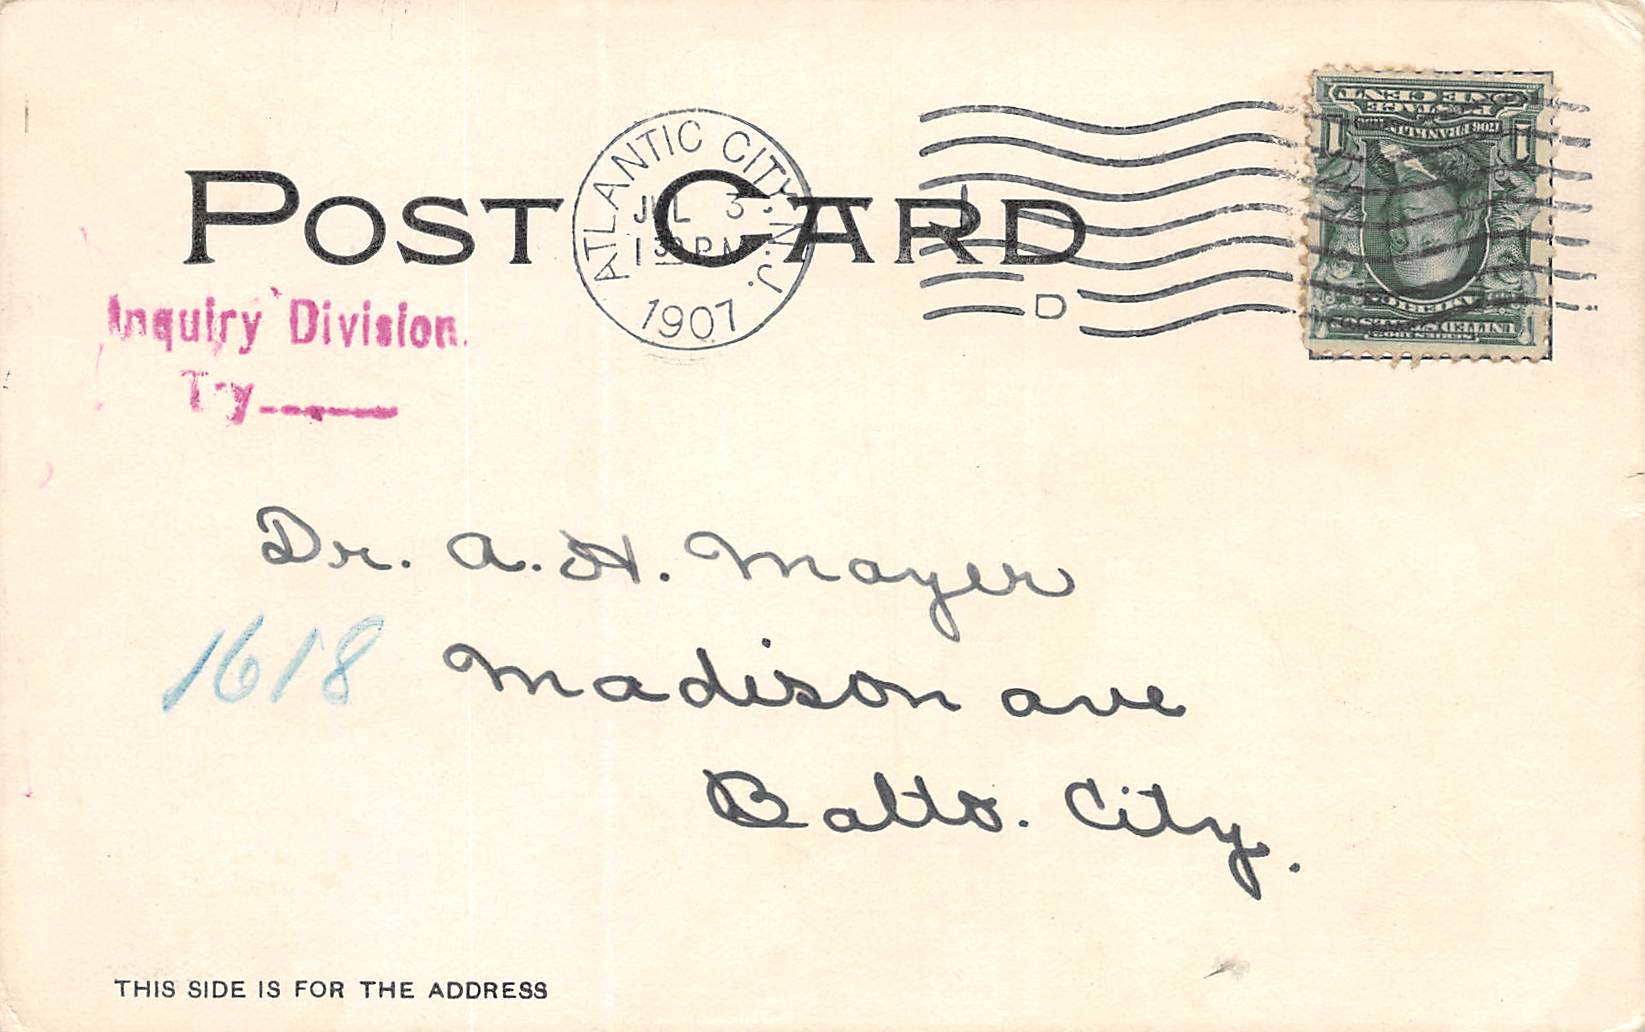 POST CARD
ATLANTIC CITY, N.J.
JUL 3
1 30 PM
1907
D
ONE CENT
POSTAGE
1 1
FRANKLIN
UNITED STATES OF AMERICA
Inquiry Division.
Try
Dr. A. H. Mayer
1618 Madison ave
Balto. City.
THIS SIDE IS FOR THE ADDRESS